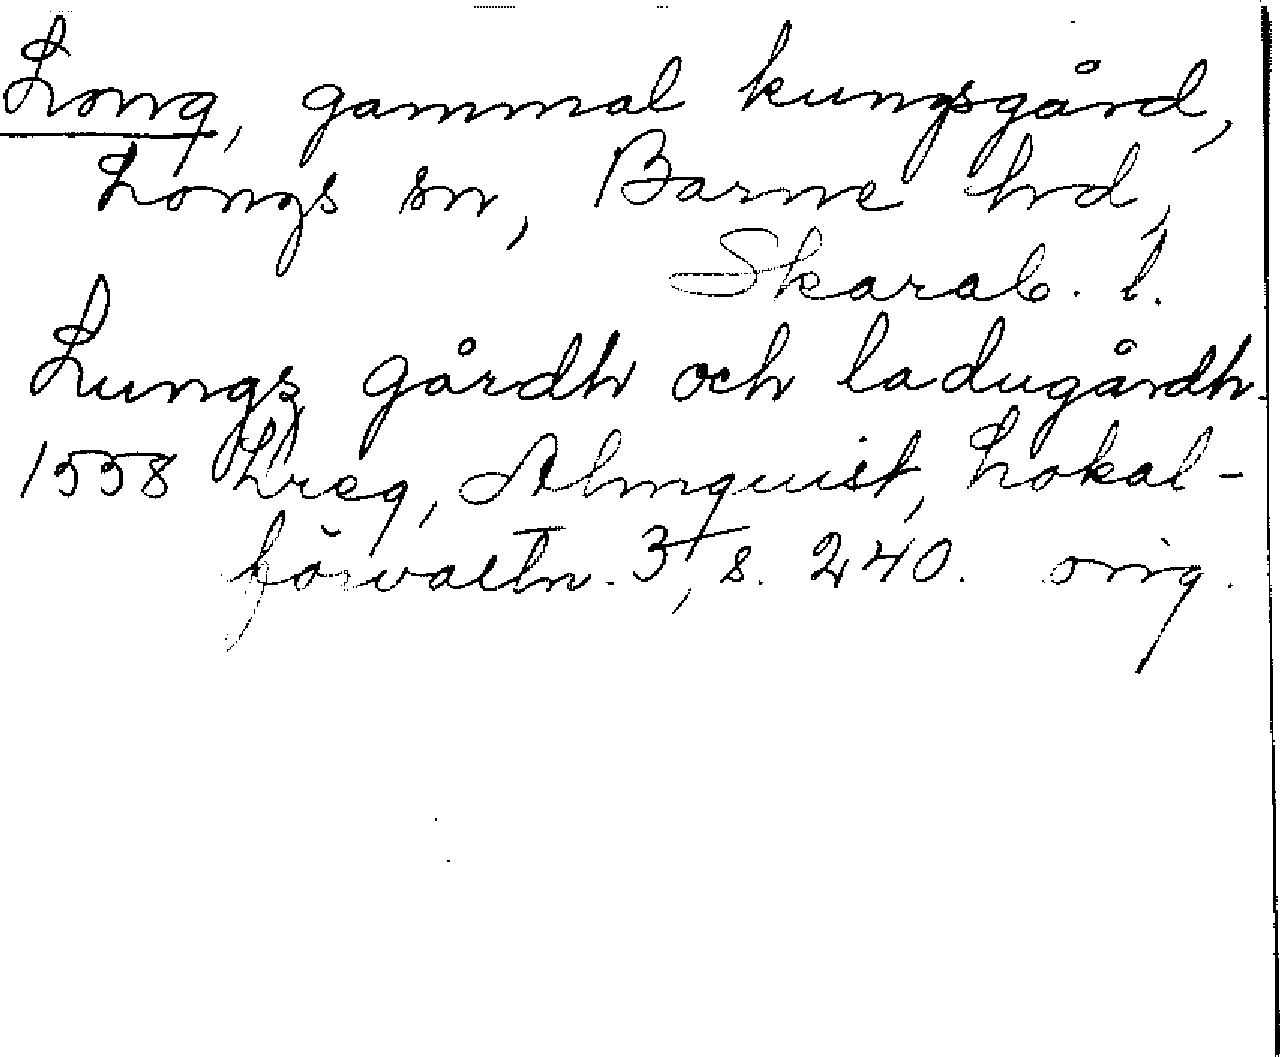 Long, gammal kungsgård,
Longs sn, Barne hrd,
Skarab. l.
Lungs gårdh och ladugårdh.
1558 Lreg, Almquist, Lokal-
förvaltn. 3, s. 240. orig.